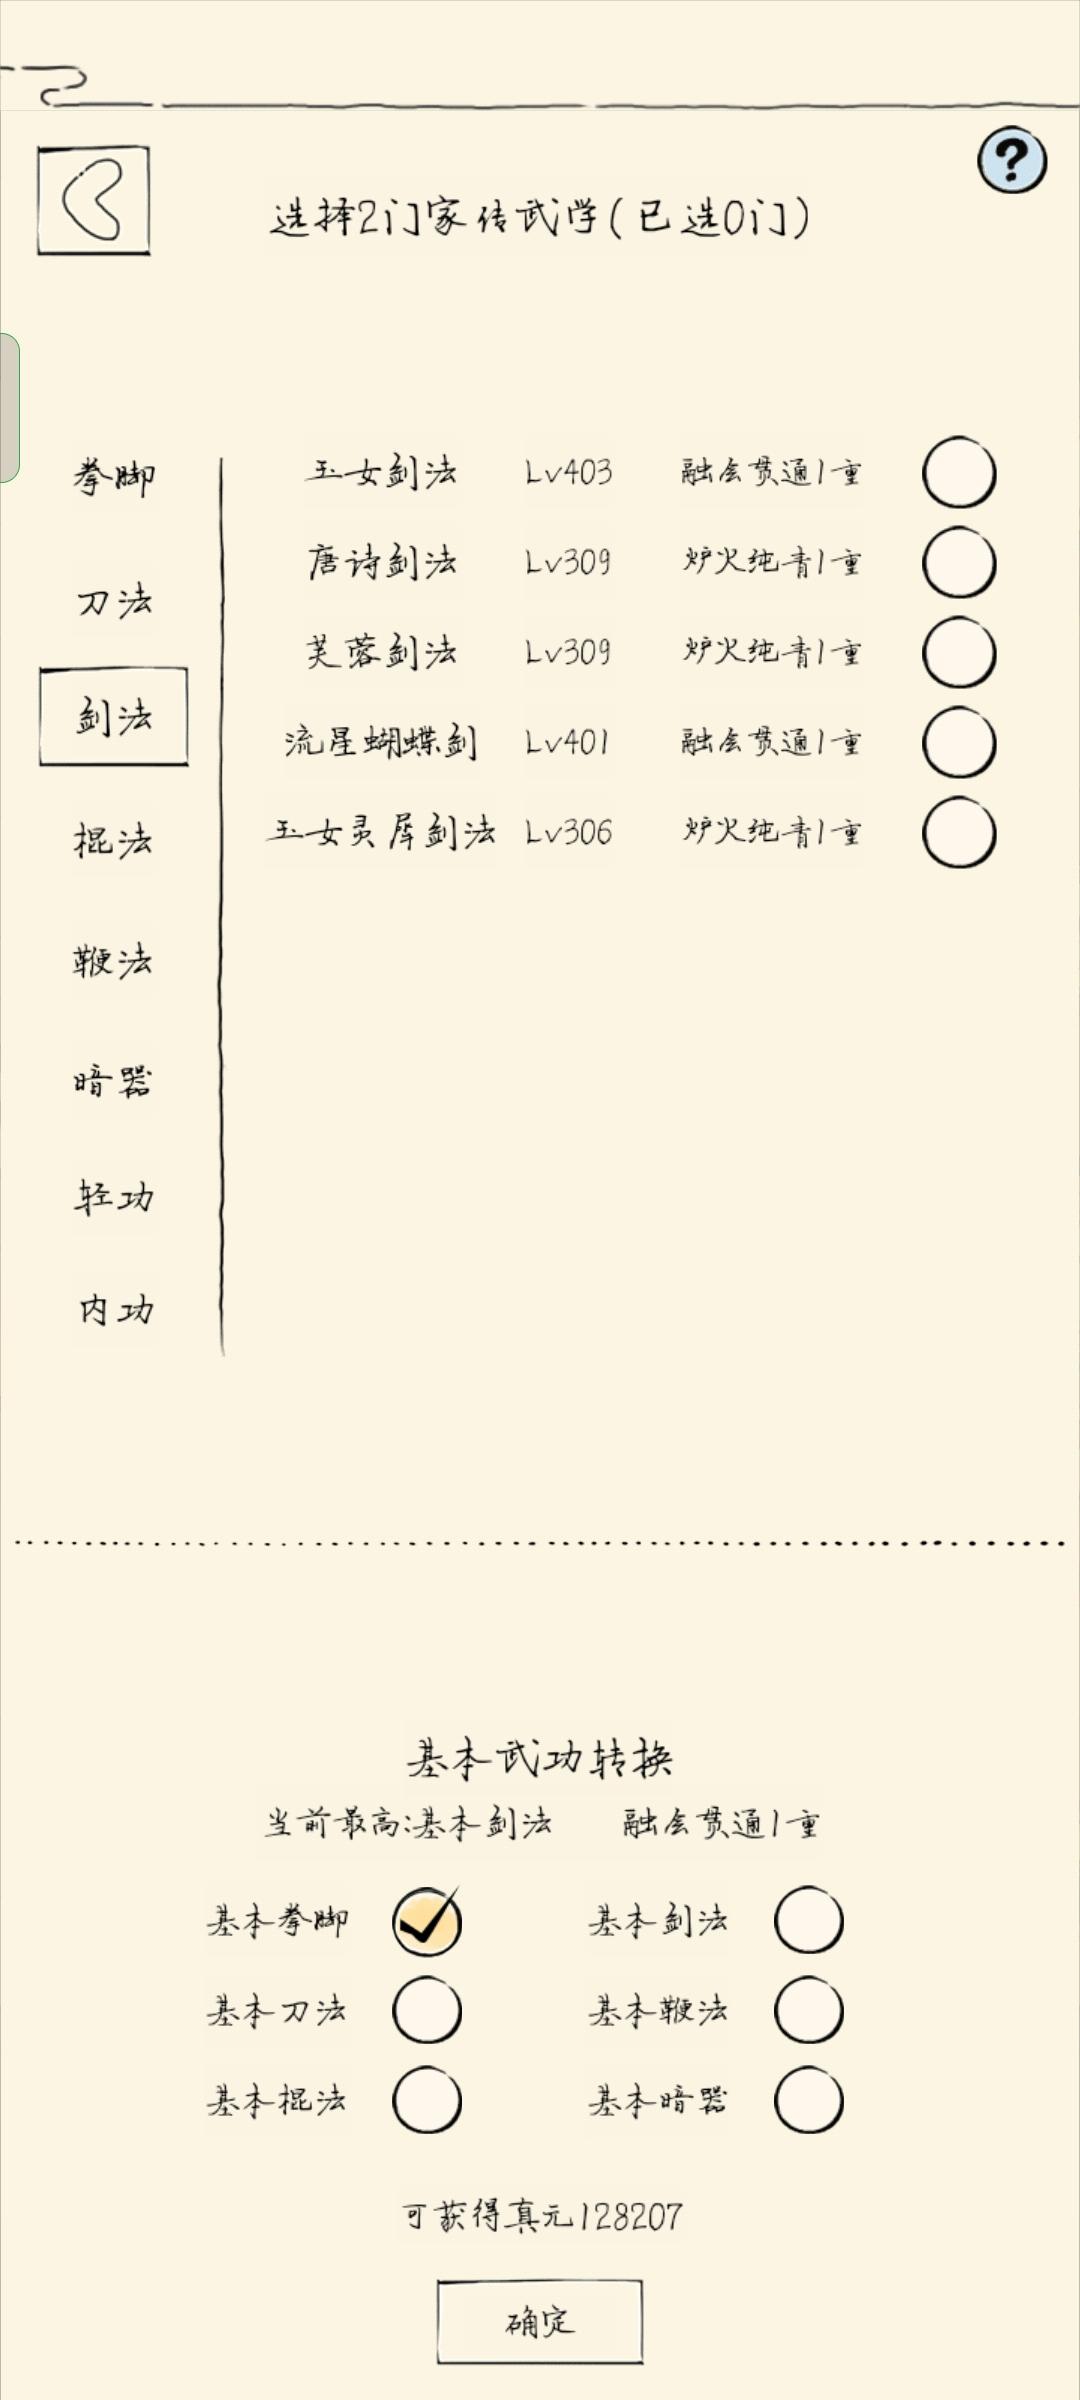 选择2门家传武学(已选0门)
?
拳脚
刀法
剑法
棍法
鞭法
暗器
轻功
内功
玉女剑法 Lv403 融会贯通1重
唐诗剑法 Lv309 炉火纯青1重
芙蓉剑法 Lv309 炉火纯青1重
流星蝴蝶剑 Lv401 融会贯通1重
玉女灵犀剑法 Lv306 炉火纯青1重
基本武功转换
当前最高:基本剑法 融会贯通1重
基本拳脚 基本剑法
基本刀法 基本鞭法
基本棍法 基本暗器
可获得真元128207
确定